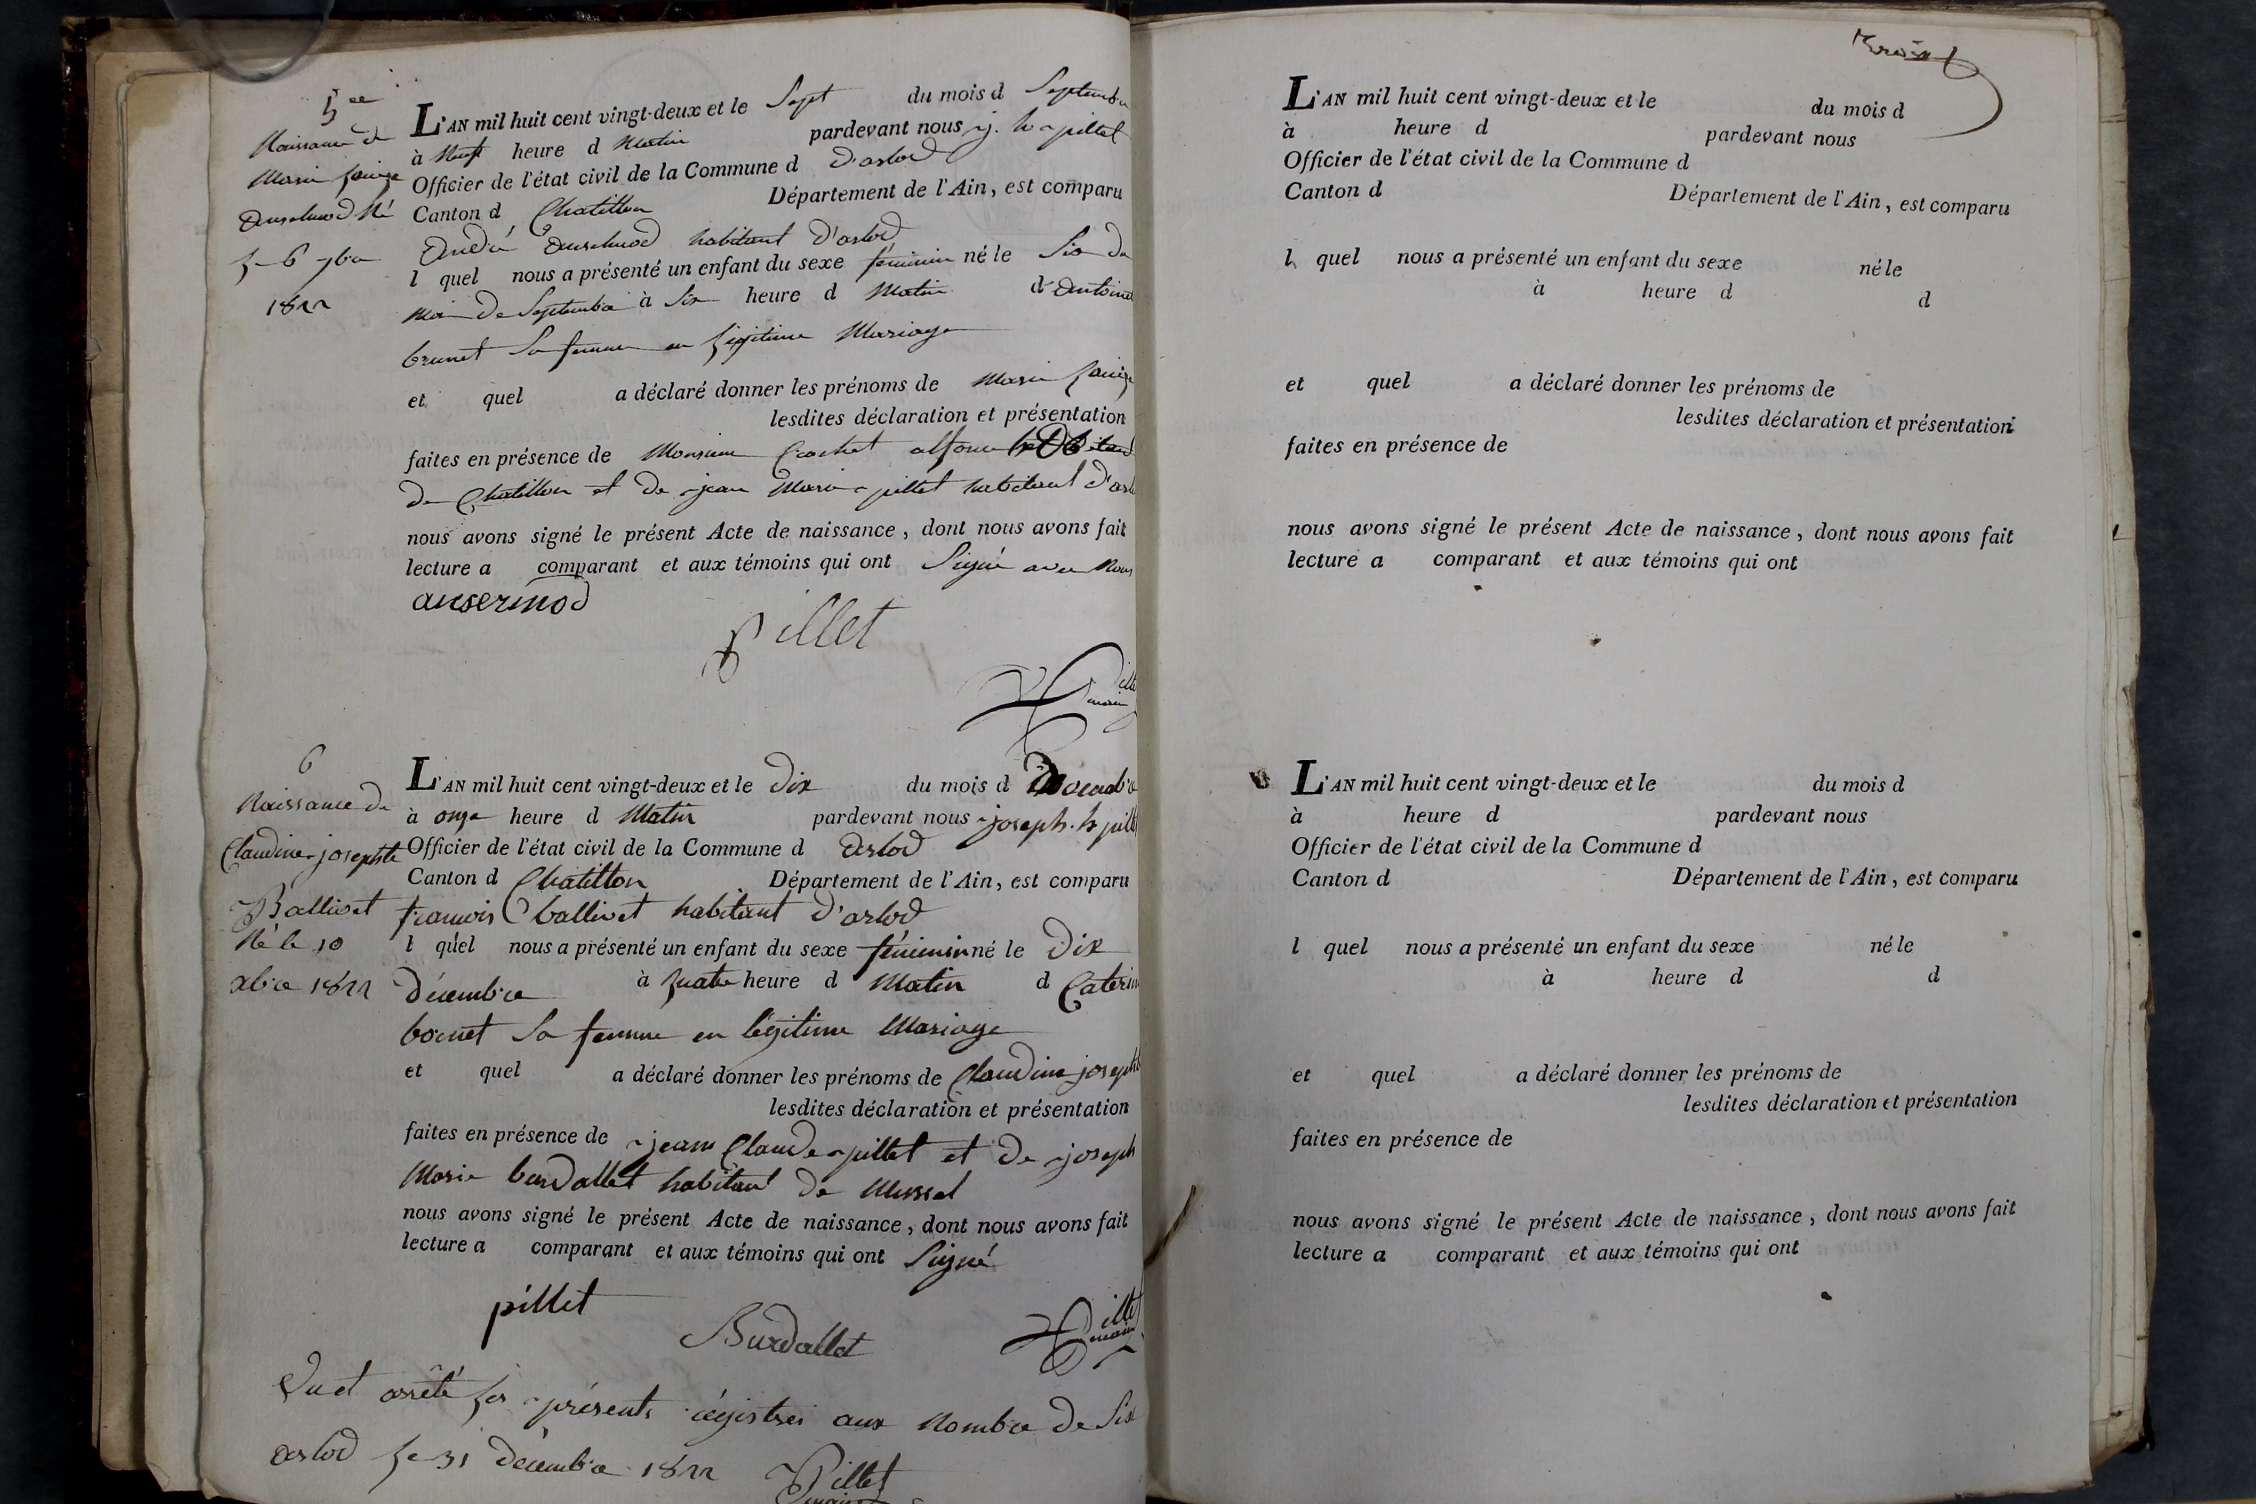 5ee
Naissance de
Marie Louise
Ansermod Né
Le 6 7bre
1822
L'AN mil huit cent vingt-deux et le Sept du mois d Septembre
à Neuf heure d Matin pardevant nous j. h. pillet
Officier de l'état civil de la Commune d d'arlod
Canton d Chatillon Département de l'Ain, est comparu
André ansermod habitant d'arlod
l quel nous a présenté un enfant du sexe féminin né le Six du
Moi de Septembre à Six heure d Matin d antoine
brunet Sa femme en Légitime Mariage
et quel a déclaré donner les prénoms de Marie Louise
lesdites déclaration et présentation
faites en présence de Monsieur Crochet
de Chatillon et de jean Marie pillet habitant d'arlod
nous avons signé le présent Acte de naissance, dont nous avons fait
lecture a comparant et aux témoins qui ont Signé avec Nous
ansermod
pillet
Pillet
maire
6
Naissance de
Claudine josephte
Ballivet
Né le 10
xbre 1822
L'AN mil huit cent vingt-deux et le Dix du mois d Décembre
à onze heure d Matin pardevant nous joseph. h pillet
Officier de l'état civil de la Commune d arlod
Canton d Chatillon Département de l'Ain, est comparu
francois ballivet habitant d'arlod
l quel nous a présenté un enfant du sexe féminin né le Dix
Décembre à quatre heure d Matin d Caterine
bornet Sa femme en légitime Mariage
et quel a déclaré donner les prénoms de Claudine josephte
lesdites déclaration et présentation
faites en présence de jean Claude pillet et de joseph
Marie burdallet habitant de Mussel
nous avons signé le présent Acte de naissance, dont nous avons fait
lecture a comparant et aux témoins qui ont Signé
pillet
Burdallet
Pillet
maire
Vu et arrêté Les présents régistres aux Nombre de Six
arlod Le 31 décembre 1822 Pillet
maire
L'AN mil huit cent vingt-deux et le du mois d
à heure d pardevant nous
Officier de l'état civil de la Commune d
Canton d Département de l'Ain, est comparu
l quel nous a présenté un enfant du sexe né le
à heure d d
et quel a déclaré donner les prénoms de
lesdites déclaration et présentation
faites en présence de
nous avons signé le présent Acte de naissance, dont nous avons fait
lecture a comparant et aux témoins qui ont
L'AN mil huit cent vingt-deux et le du mois d
à heure d pardevant nous
Officier de l'état civil de la Commune d
Canton d Département de l'Ain, est comparu
l quel nous a présenté un enfant du sexe né le
à heure d d
et quel a déclaré donner les prénoms de
lesdites déclaration et présentation
faites en présence de
nous avons signé le présent Acte de naissance, dont nous avons fait
lecture a comparant et aux témoins qui ont